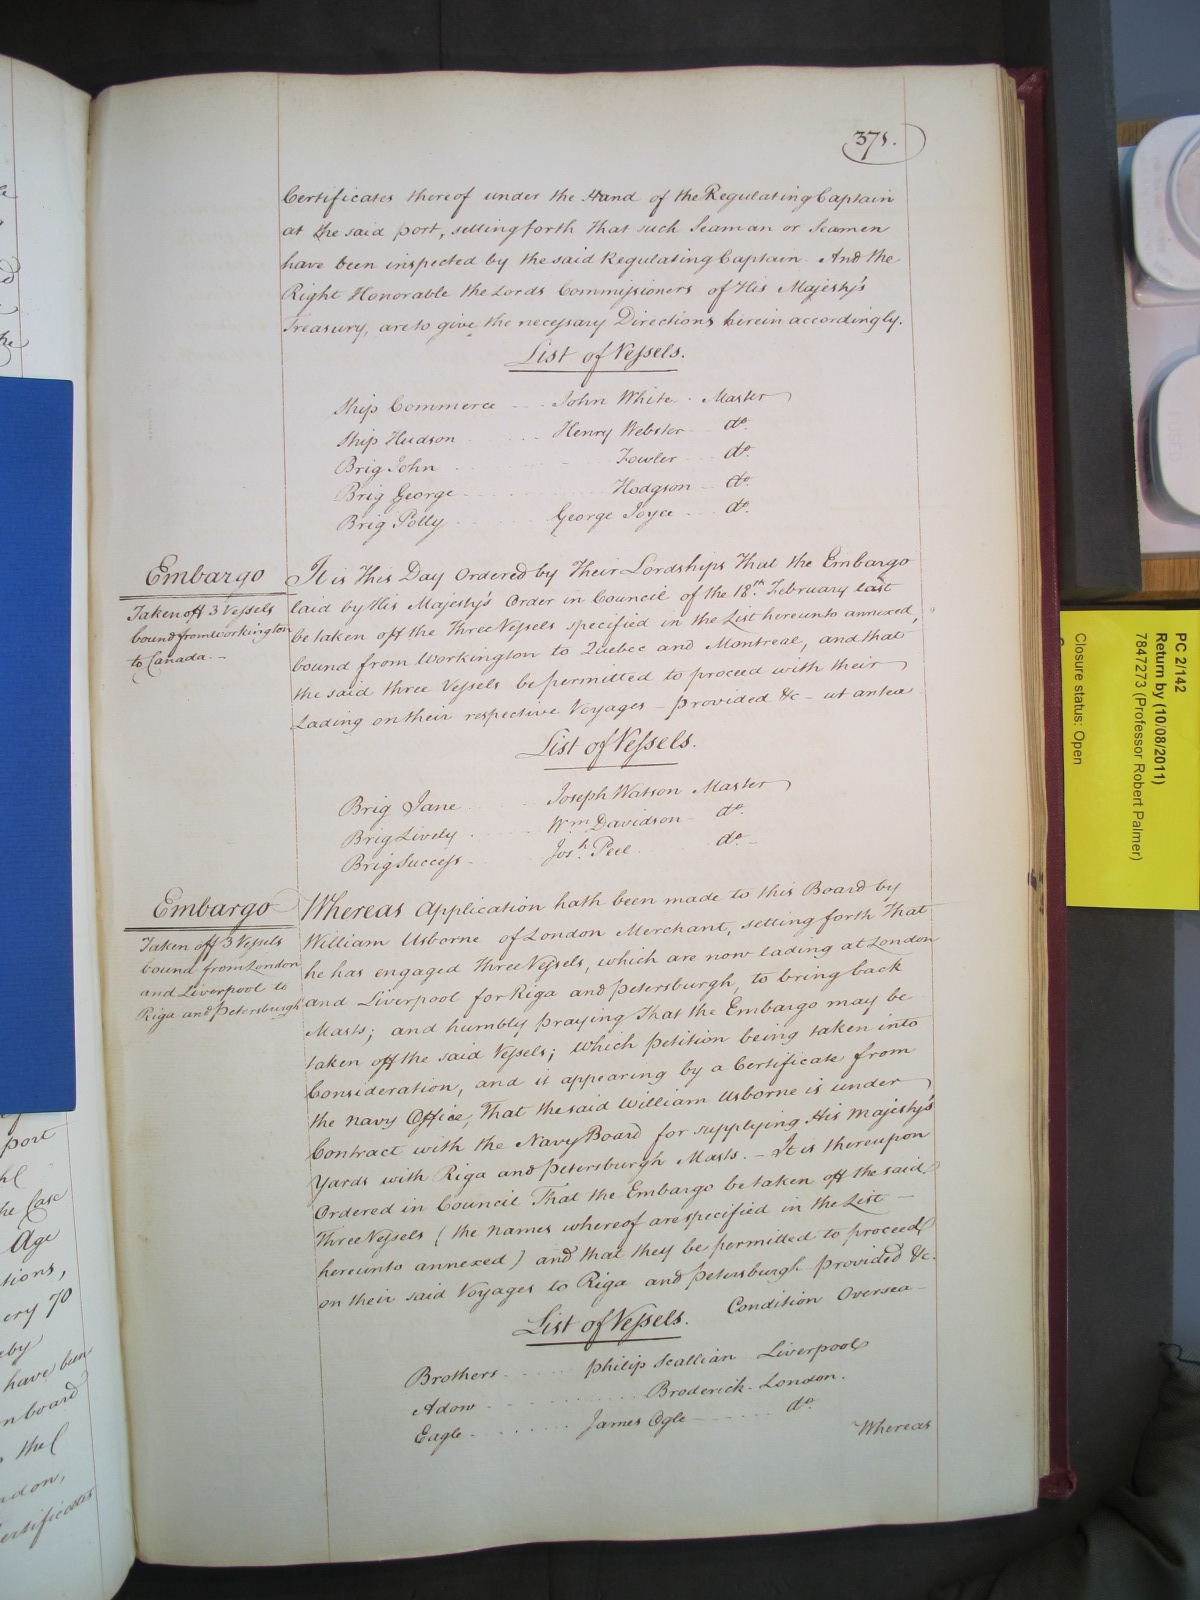 371.
Certificates thereof under the Hand of the Regulating Captain
at the said port, setting forth that such Seaman or Seamen
have been inspected by the said Regulating Captain. And the
Right Honorable the Lords Commissioners of His Majesty's
Treasury, are to give the necessary Directions herein accordingly.
List of Vessels.
Ship Commerce John White. Master
Ship Hudson Henry Webster do.
Brig John Fowler do.
Brig George Hodgson do.
Brig Polly George Joyce do.
Embargo
Taken off 3 Vessels
bound from Workington
to Canada.-
It is This Day Ordered by Their Lordships That the Embargo
laid by His Majesty's Order in Council of the 18th. February last
be taken off the Three Vessels specified in the List hereunto annexed,
bound from Workington to Quebec and Montreal, and that
the said three Vessels be permitted to proceed with their
Lading on their respective Voyages - provided &c - ut antea
List of Vessels.
Brig Jane Joseph Watson Master
Brig Lively Wm. Davidson do.
Brig Success Josh. Peel do.
Embargo
Taken off 3 Vessels
bound from London
and Liverpool to
Riga and Petersburgh
Whereas Application hath been made to this Board by
William Usborne of London Merchant, setting forth That
he has engaged Three Vessels, which are now lading at London
and Liverpool for Riga and Petersburgh, to bring back
Masts; and humbly praying That the Embargo may be
taken off the said Vessels; Which petition being taken into
Consideration, and it appearing by a Certificate from
the Navy Office, That the said William Usborne is under
Contract with the Navy Board for supplying His Majesty's
Yards with Riga and Petersburgh Masts. - It is thereupon
Ordered in Council That the Embargo be taken off the said
Three Vessels (the names whereof are specified in the List
hereunto annexed) and that they be permitted to proceed
on their said Voyages to Riga and Petersburgh provided &c.
Condition Oversea
List of Vessels.
Brothers Philip Scallian Liverpool
Adow Broderick London.
Eagle James Ogle do.
Whereas
port
the Case
Age
tions,
ery 70
eby
have been
n board
the
ndon,
ertificates
PC 2/142
Return by (10/08/2011)
7847273 (Professor Robert Palmer)
Closure status: Open